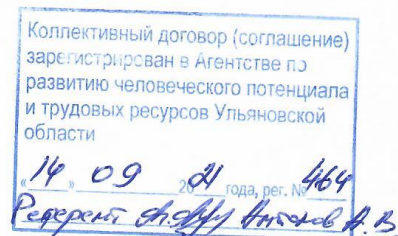 Коллективный договор (соглашение)
зарегистрирован в Агентстве по
развитию человеческого потенциала
и трудовых ресурсов Ульяновской
области
«14» 09 2021 года, рег. №464
Референт Антонов А. В.